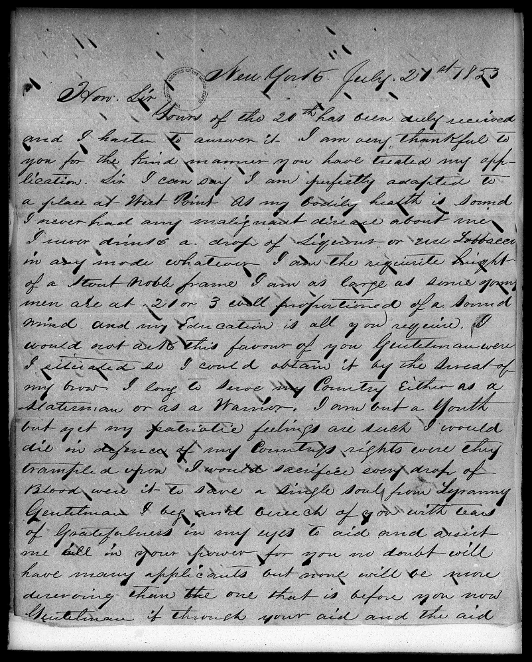 New York July. 21st 1853
Hon. Sir
Yours of the 20th has been duly received
and I hasten to answer it I am very thankful to
you for the kind manner you have treated my app-
lication. Sir I can say I am perfectly adapted to
a place at West Point As my bodily health is sound
I never had any malignant disease about me
I never drink a drop of Liquour or use Tobbacco
in any mode whatever I am the requisite hight
of a Stout Noble frame I am as large as some young
men are at 21 or 3 well proportioned of a sound
mind and my Education is all you require. I
would not ask this favour of you Gentelman were
I situated so I could obtain it by the sweat of
my brow. I long to serve my Country Either as a
statesman or as a Warrior. I am but a Youth
but yet my patriotic feelings are such I would
die in defence of my Countrys rights were they
trampled upon I would sacrifice every drop of
Blood were it to save a single soul from Tyranny
Gentelman I beg and beseech of you with tears
of Gratefulness in my eyes to aid and assist
me all in your power for you no doubt will
have many applicants but none will be more
deserving than the one that is before you now
Gentelman if through your aid and the aid